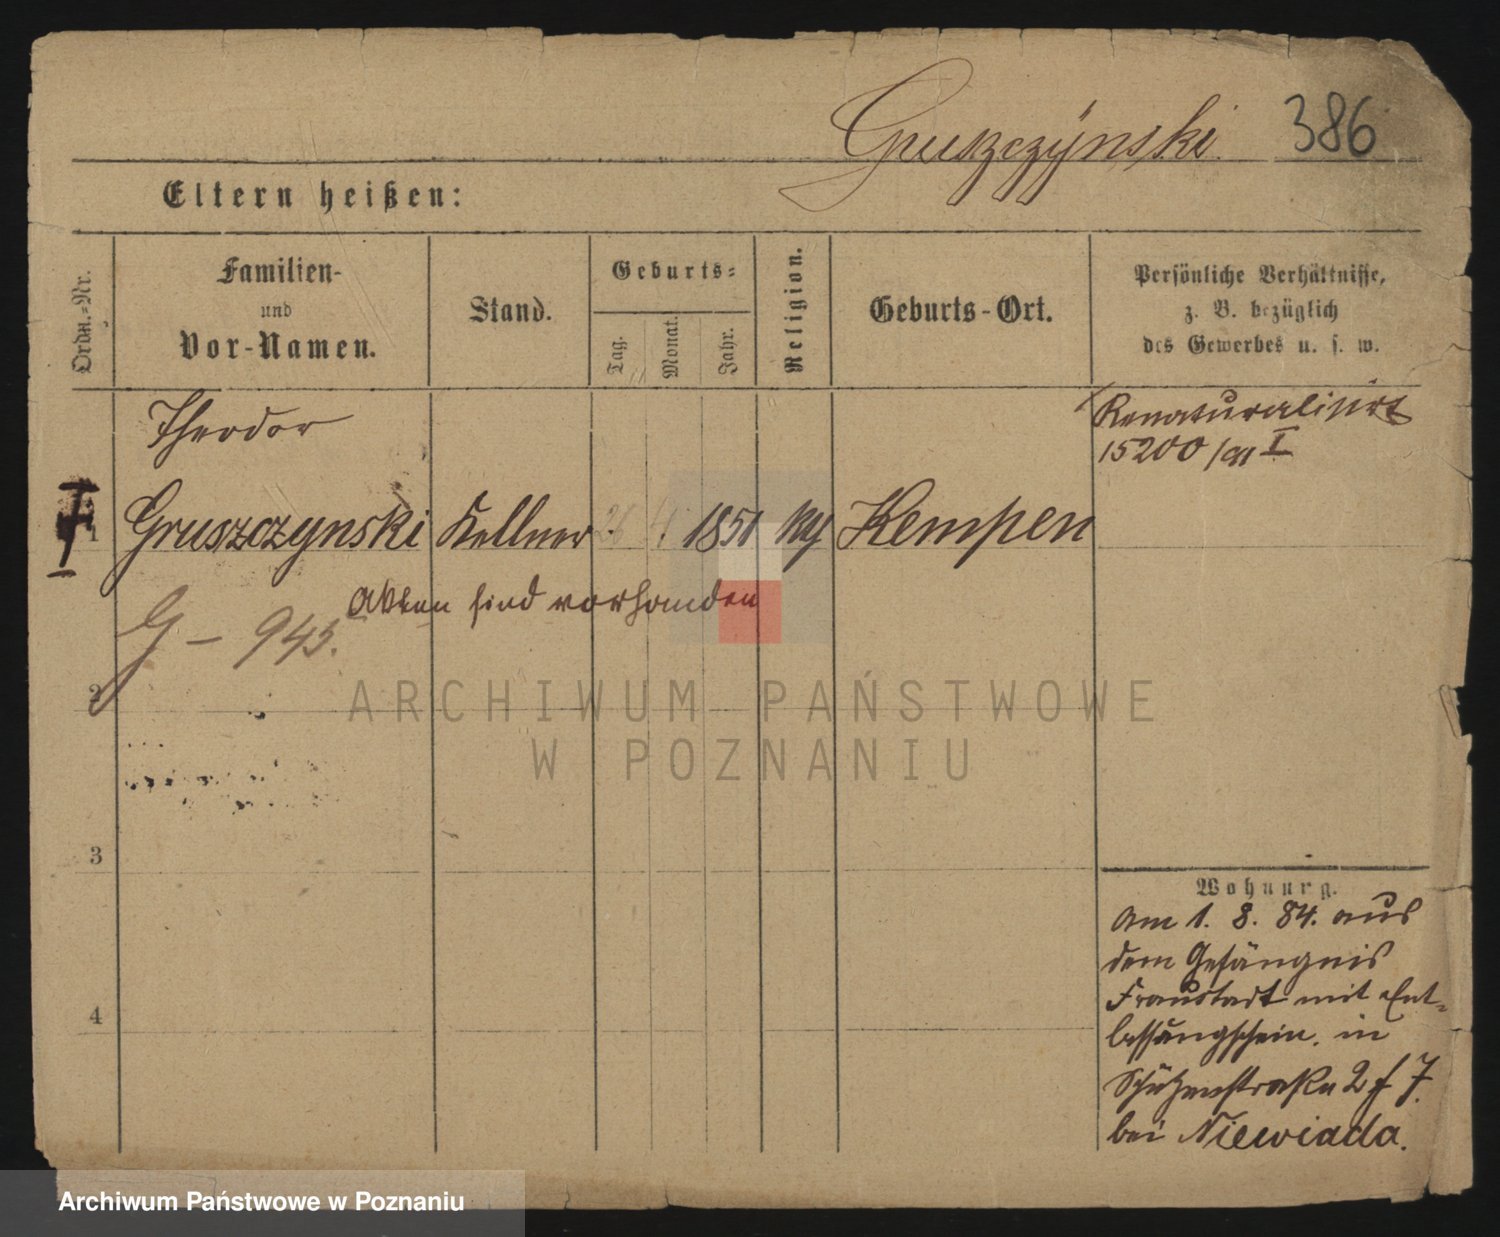 Gruszczyński 386
Eltern heißen:
Ordn.-Nr.
Familien-
und
Vor-Namen.
Stand.
Geburts-
Tag.
Monat.
Jahr.
Religion.
Geburts-Ort.
Persönliche Verhältnisse,
z. B. bezüglich
des Gewerbes u. s. w.
Theodor
Renaturalisirt
15200/91 I
1 Gruszczynski Kellner 26 4 1851 Kempen
Akten sind vorhanden
G - 945.
2
ARCHIWUM PAŃSTWOWE
W POZNANIU
3
Wohnung.
Am 1. 8. 84. aus
dem Gefängnis
4
Fraustadt mit Ent-
lassungschein. in
Schützenstraße 2 f 7.
bei Niewiada.
Archiwum Państwowe w Poznaniu